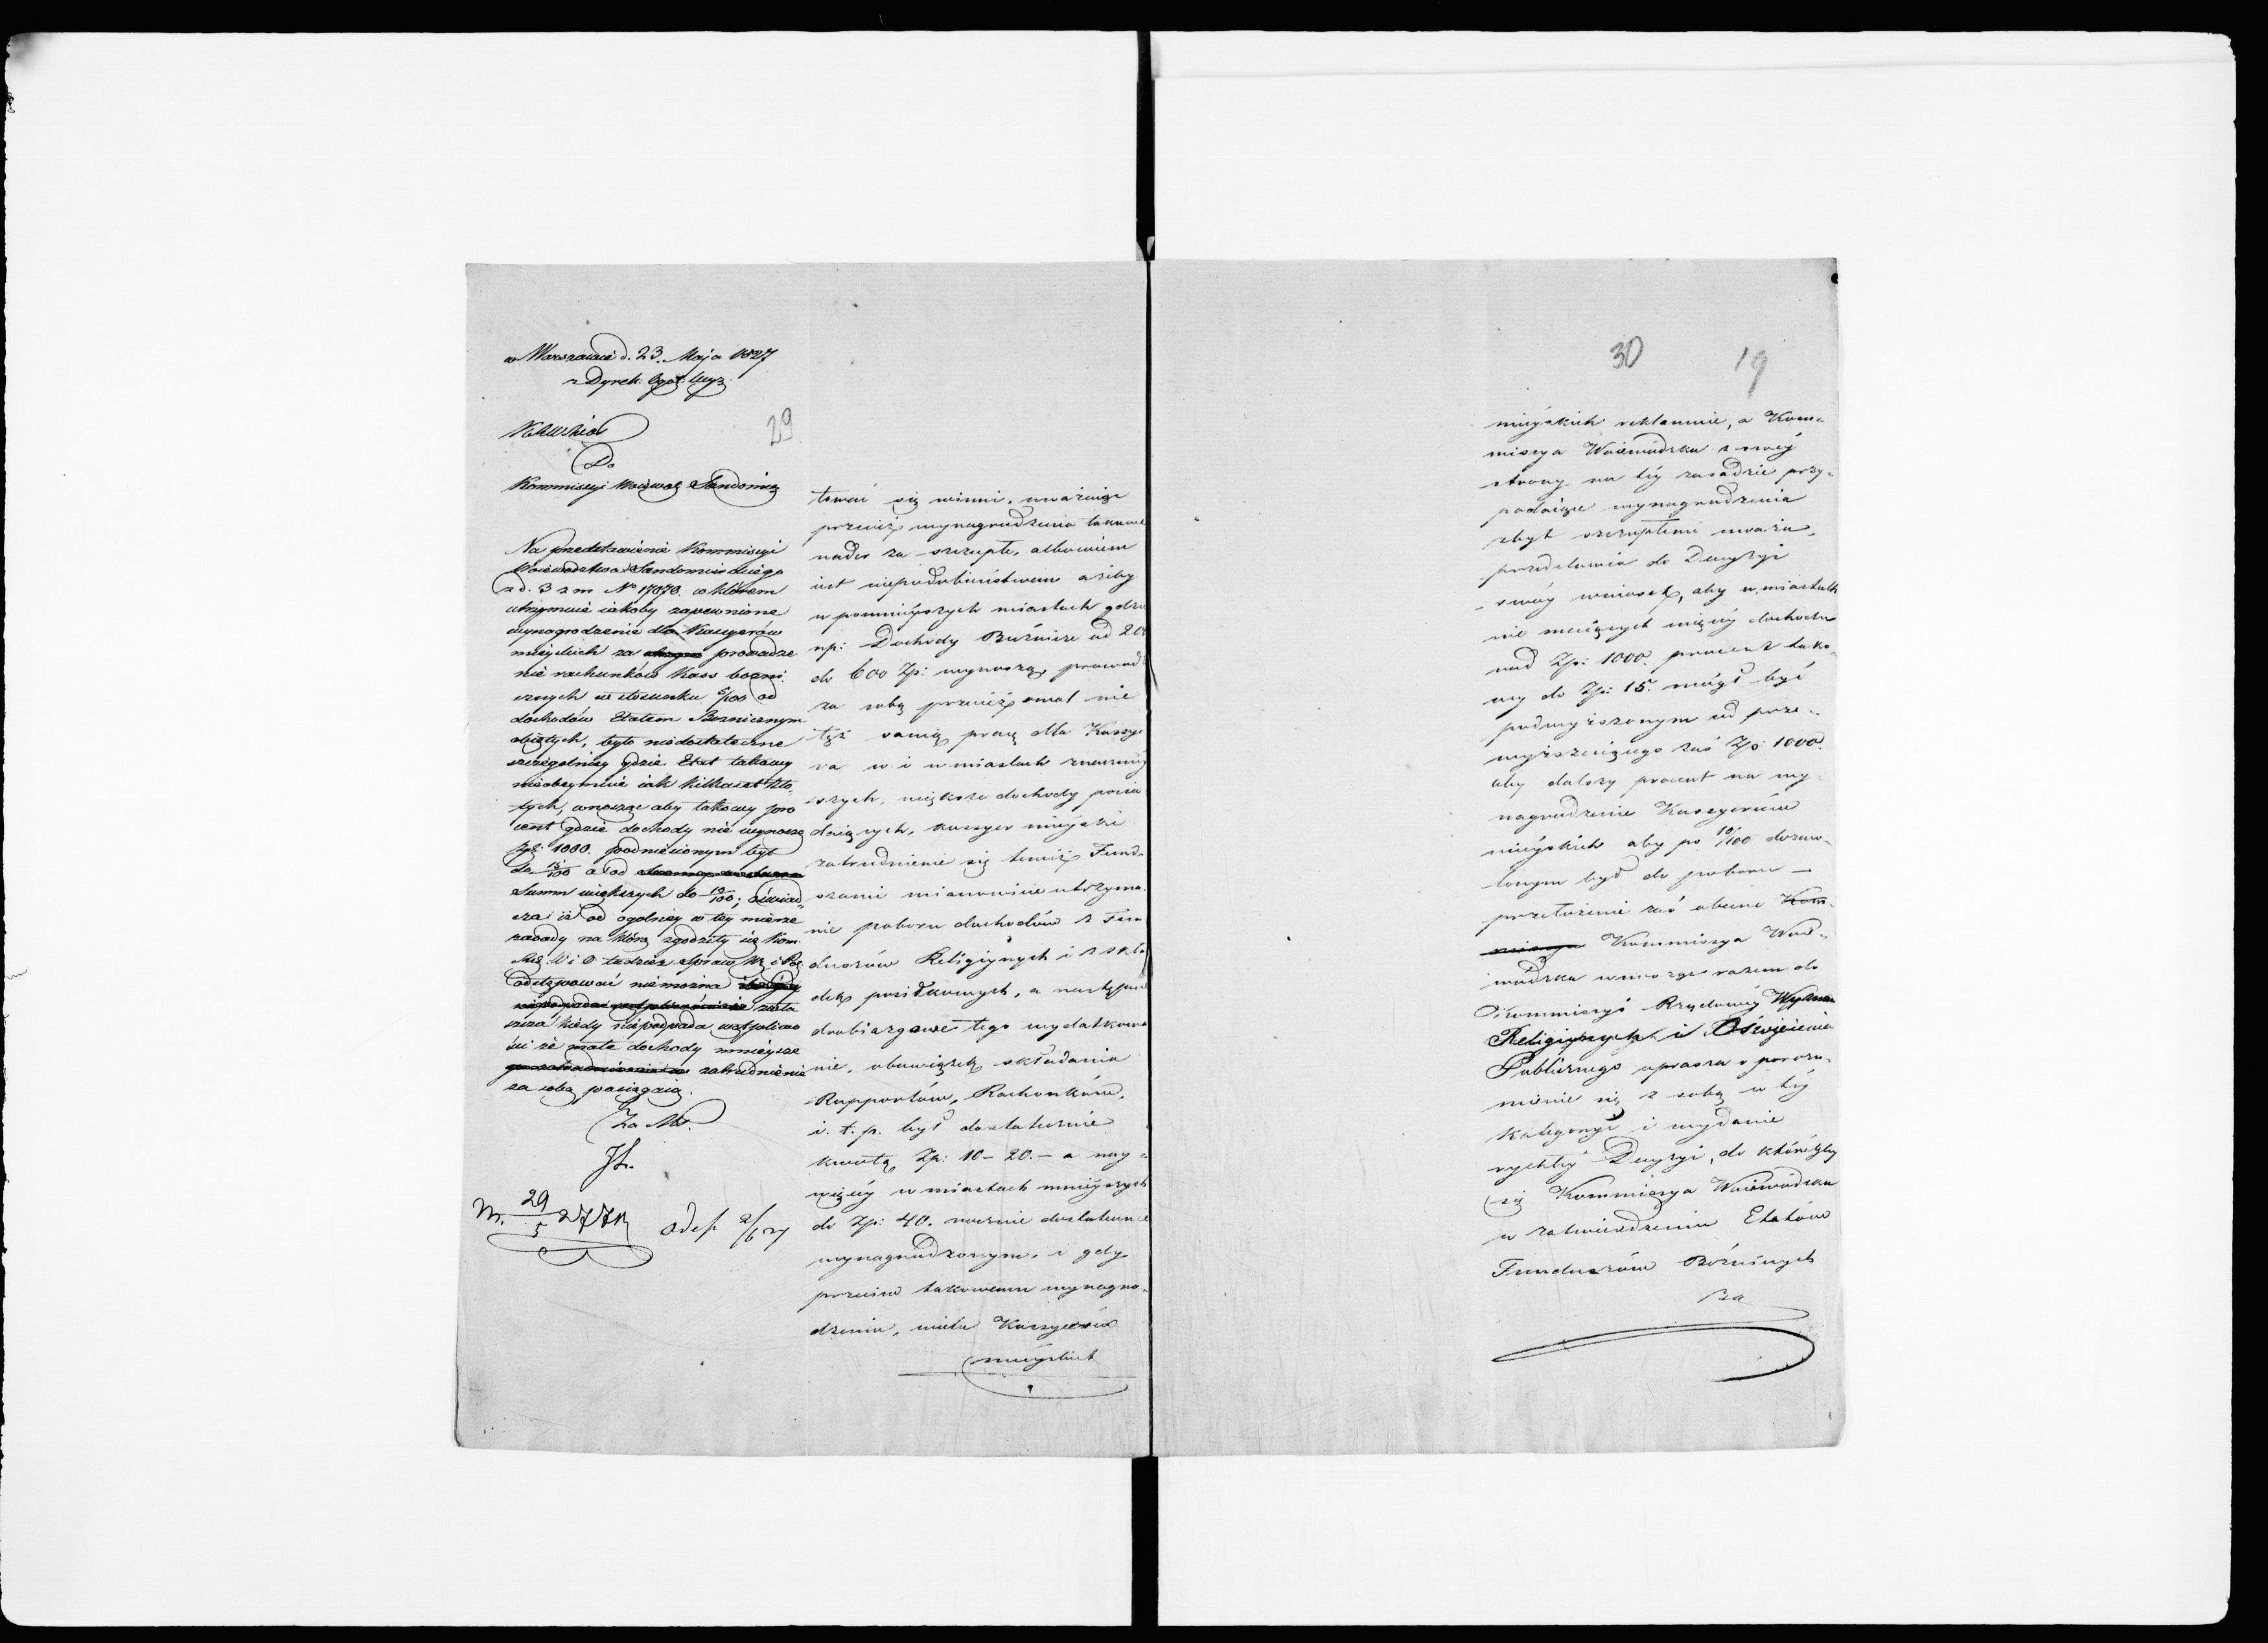 w Warszawie d. 23. Maja 1827
z Dyrek: Ogól: Wyz.
29
Do
Kommissyi Wojewdz Sandomierz
Na przedstawienie Kommissyi
Województwa Sandomierskiego
z d. 3 z m No 17870. w którem
utrzymuie iakoby zapewnione
wynagrodzenie dla Kassyerów
mieyskich za prowadze
nie rachunków Kass bozni
cznych w stosunku 5/100 od
dochodów Etatem Boznicznym
obiętych, było niedostateczne
szczególniey gdzie Etat takowy
nieobeymuie iak kilkaset Zło
tych, wnosząc aby takowy pro
cent gdzie dochody nie wynoszą
Złp: 1000. podniesionym był
do 15/100 a od
Summ większych do 10/100; oświad
cza iż od ogólney w tey mierze
zasady na którą zgodziły się Kom.
Rzą. W i O tudzież Spraw W. i Po
odstępować niemożna
zwła
szcza kiedy niepodpada wątpliwo
ści że małe dochody mnieysze
zatrudnienie
za sobą pociągaią.
Za Mtr.
29/5 27
odesł 2/6 27
tować się winni, uważaiąc
przecież wynagrodzenia takowe
nader za szczupłe, albowiem
iest niepodobieństwem ażeby
w pomnieyszych miastach gdzie
np: Dochody Bóżnicze od 200
do 600 Zp: wynoszą, prowadz
za sobą przecież omal nie
też samą pracę dla Kassye
ra iw i w miastach znaczniey
szych, większe dochody posia
daiących, kassyer mieyski
zatrudnienie się temiż Fund.
uszami mianowicie utrzyma-
nie poboru dochodów z Fun
duszów Religiynych i z skła
dek posiłkowych, a następnie
drobiazgowe tego wydatkowa
nie, obowiązek składania
Rapportów, Rachunków,
i. t. p. był dostatecznie
kwotą Zp: 10 – 20. – a nay-
więcéy w miastach mnieyszych
do Zp: 40. rocznie dostateczne
wynagrodzonym, i gdy
przeciw takowemu wynagro-
dzeniu, wielu Kassyerów
mieyskich
30
19
mieyskich reklamuie, a Kom-
missya Woiewódzka z swéy
strony na téy zasadzie przy-
padaiące wynagrodzenia
zbyt szczupłemi uważa,
przedstawia do Decyzyi
swóy wniosek, aby w miastach
nie maiących więcéy dochodu
nad Zp: 1000. procent tako-
wy do Zp: 15. mógł być
podwyższonym od prze-
wyższaiącego zaś Zp: 1000.
aby dalszy procent na wy
nagrodzenie Kassyerów
mieyskich aby po 10/100 dozwo-
lonym był do poboru —
przełożenie zaś obecne Kom-
missya Kommissya Woie-
wódzka wnosząc razem do
Kommissyi Rządowéy Wyznań
Religiynych i Oświecenia
Publicznego uprasza o porozu-
mienie się z sobą w téy
kategoryi i wydanie
rychłéy Decyzyi, do któréyby
się Kommissya Woiewódzka
w zatwierdzeniu Etatów
Funduszów Bóżniczych